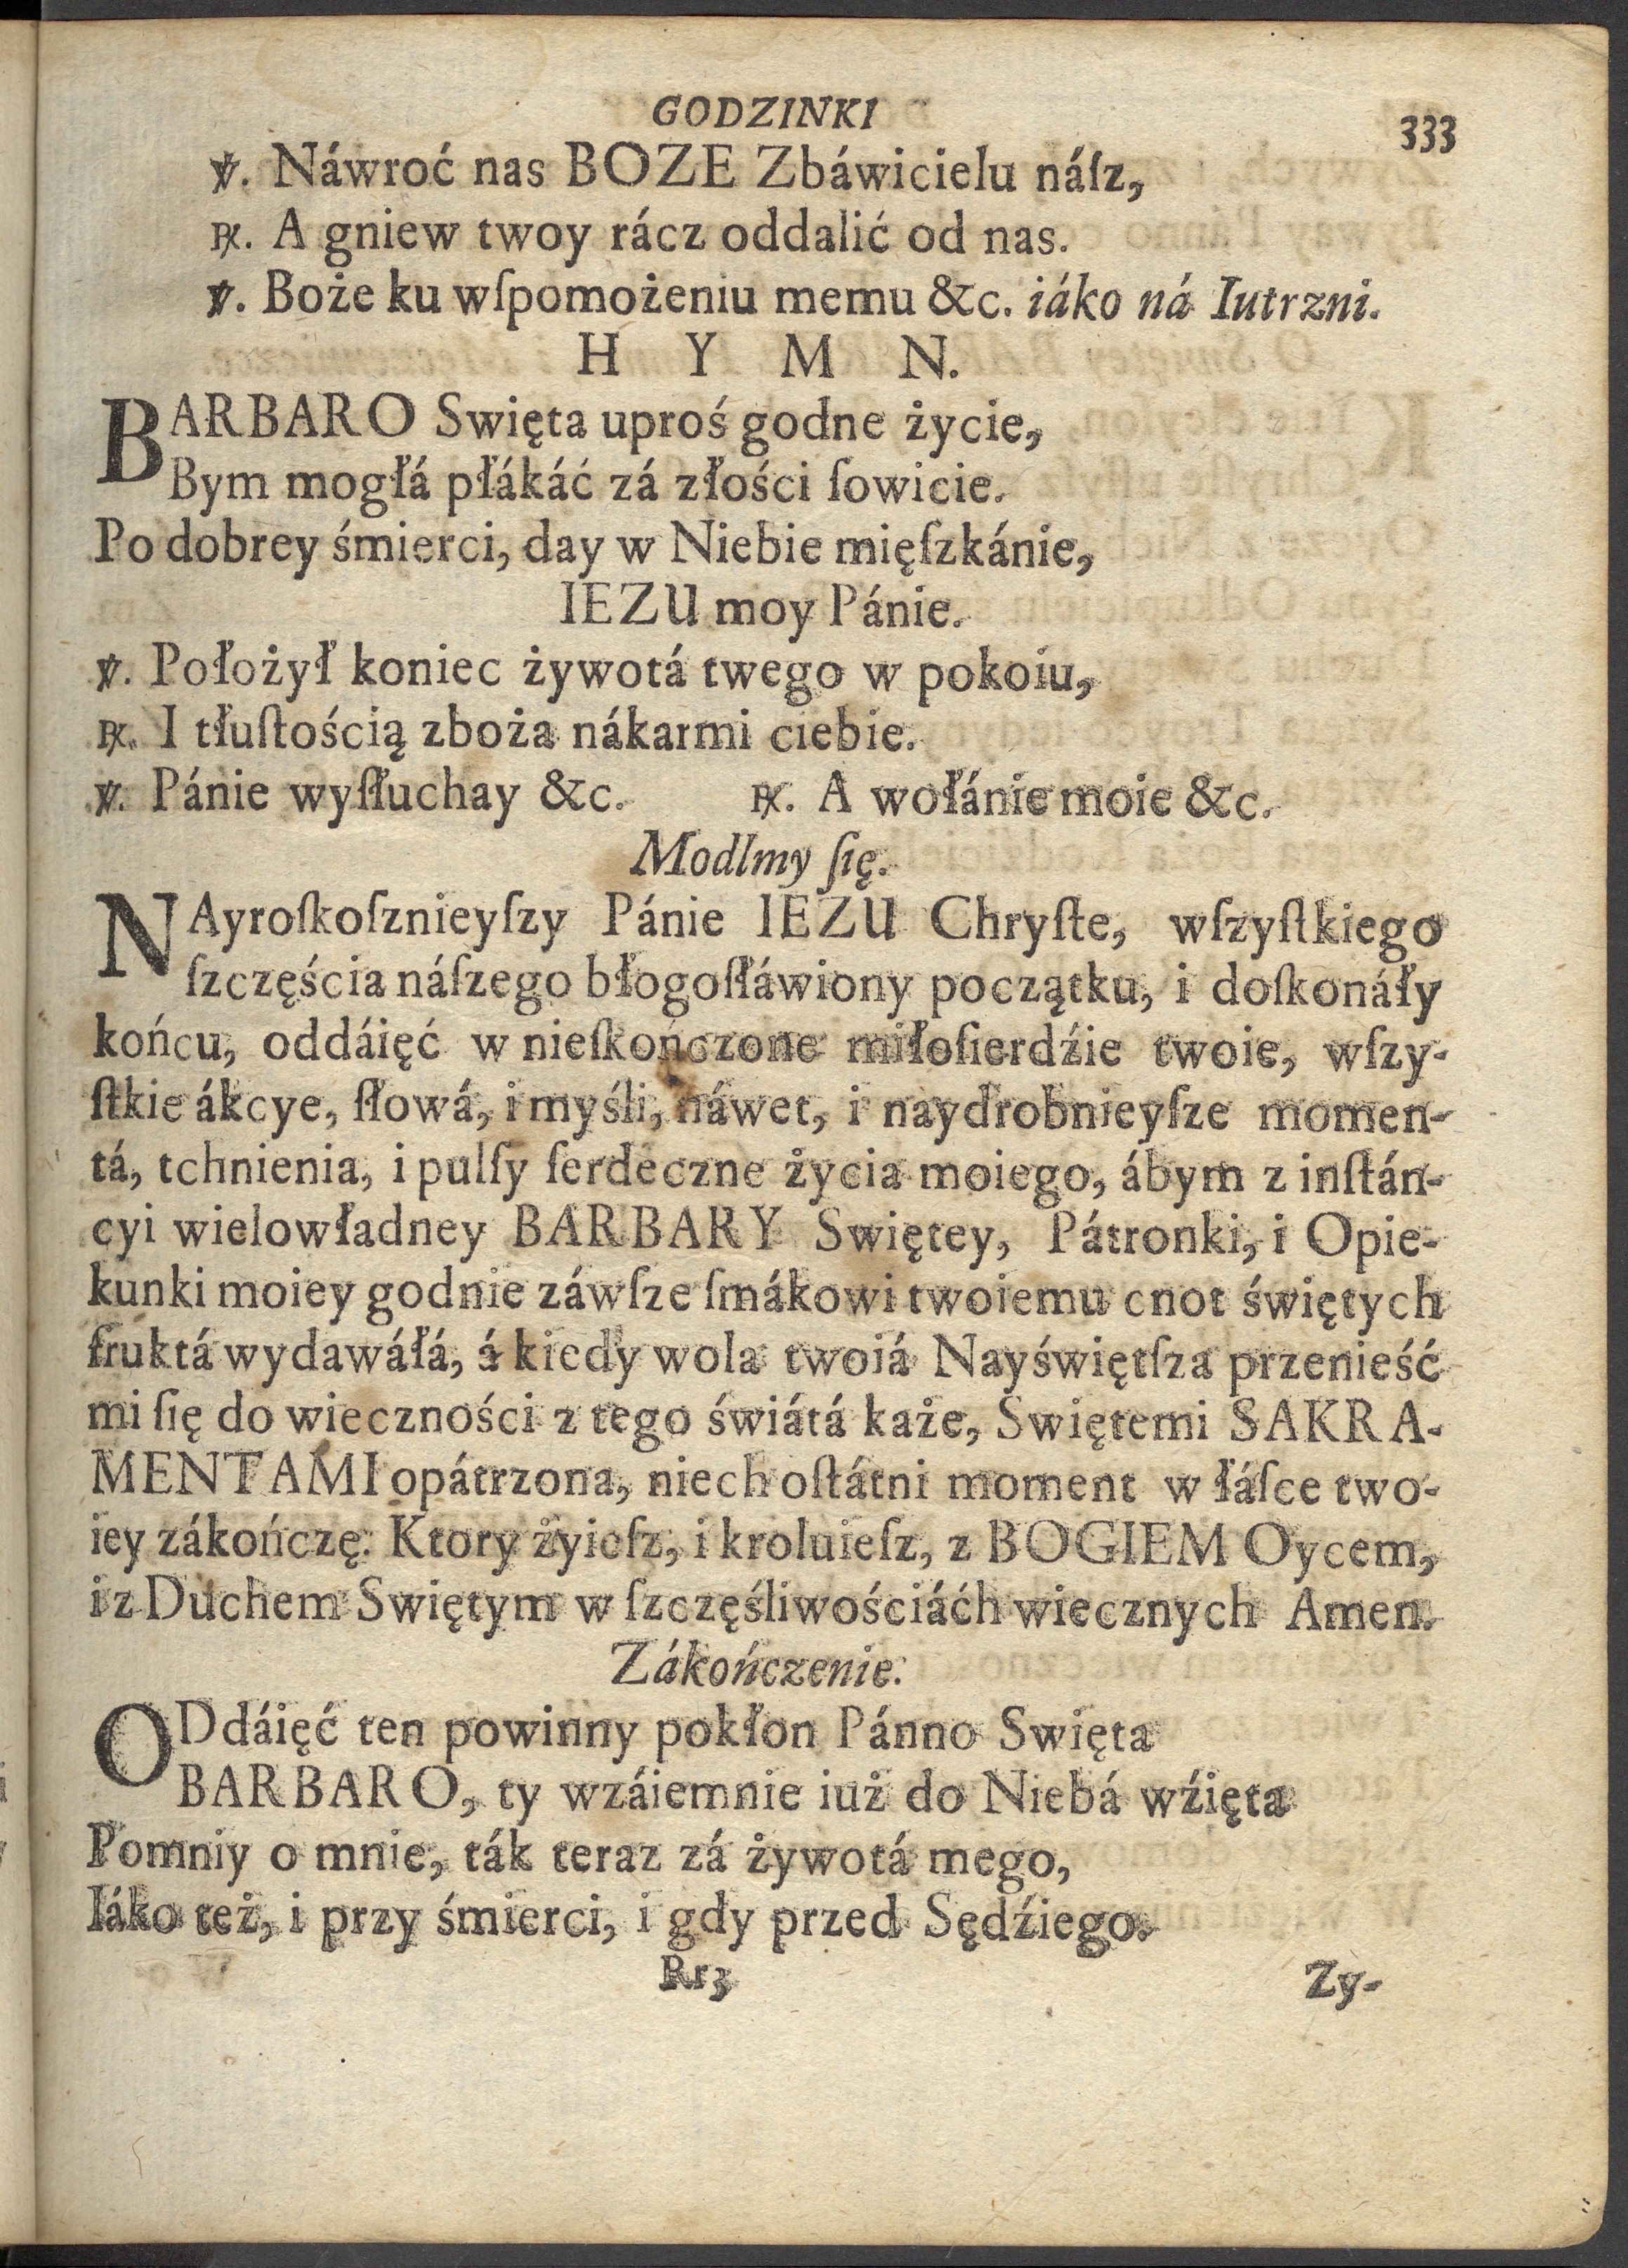 GODZINKI
333
℣. Náwroć nas BOZE Zbáwicielu náſz,
℟. A gniew twoy rácz oddalić od nas.
℣. Boże ku wſpomożeniu memu &c. iáko ná Iutrzni.
H Y M N.
BARBARO Swięta uproś godne życie,
Bym mogłá płákáć zá złości ſowicie.
Po dobrey śmierci, day w Niebie mięſzkánie,
IEZU moy Pánie.
℣. Położył koniec żywotá twego w pokoiu,
℟. I tłuſtością zboża nákarmi ciebie.
℣. Pánie wyſłuchay &c. ℟. A wołánie moie &c.
Modlmy ſię.
NAyroſkoſznieyſzy Pánie IEZU Chryſte, wſzyſtkiego
ſzczęścia náſzego błogoſłáwiony początku, i doſkonáły
końcu, oddáięć w nieſkończone miłoſierdźie twoie, wſzy-
ſtkie ákcye, ſłowá, i myśli, náwet, i naydrobnieyſze momen-
tá, tchnienia, i pulſy ſerdeczne życia moiego, ábym z inſtán-
cyi wielowładney BARBARY Swiętey, Pátronki, i Opie-
kunki moiey godnie záwſze ſmákowi twoiemu cnot świętych
fruktá wydawáłá, á kiedy wola twoiá Nayświętſza przenieść
mi ſię do wieczności z tego świátá każe, Swiętemi SAKRA-
MENTAMI opátrzona, niech oſtátni moment w łáſce two-
iey zákończę. Ktory żyieſz, i kroluieſz, z BOGIEM Oycem,
i z Duchem Swiętym w ſzczęśliwościáćh wiecznych Amen.
Zákończenie.
ODdáięć ten powinny pokłon Pánno Swięta
BARBARO, ty wzáiemnie iuż do Niebá wźięta
Pomniy o mnie, ták teraz zá żywotá mego,
Iáko też, i przy śmierci, i gdy przed Sędźiego.
Rr3
Zy-